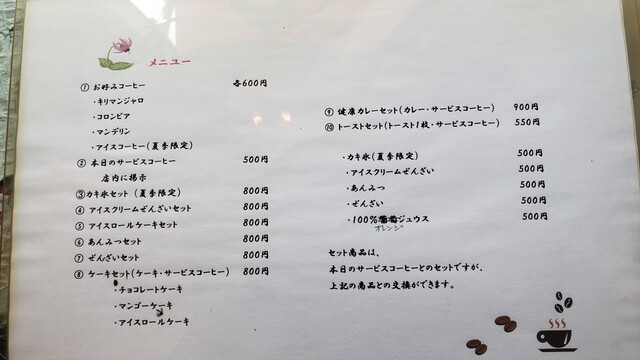 メニュー
① お好みコーヒー 各600円
・キリマンジャロ
・コロンビア
・マンデリン
・アイスコーヒー(夏季限定)
② 本日のサービスコーヒー 500円
店内に掲示
③カキ氷セット (夏季限定) 800円
④ アイスクリームぜんざいセット 800円
⑤ アイスロールケーキセット 800円
⑥ あんみつセット 800円
⑦ ぜんざいセット 800円
⑧ ケーキセット(ケーキ・サービスコーヒー) 800円
・チョコレートケーキ
・マンゴーケーキ
・アイスロールケーキ
⑨ 健康カレーセット(カレー・サービスコーヒー) 900円
⑩ トーストセット(トースト1枚・サービスコーヒー) 550円
・カキ氷(夏季限定) 500円
・アイスクリームぜんざい 500円
・あんみつ 500円
・ぜんざい 500円
・100%ジュウス 500円
オレンジ
セット商品は、
本日のサービスコーヒーとのセットですが、
上記の商品との交換ができます。